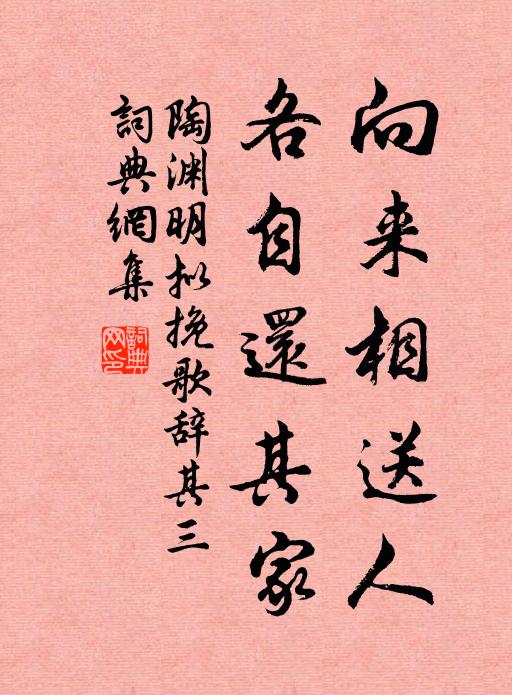 向来相送人
各自還其家
陶渊明拟挽歌辞其三
詞典網集
詞典网印